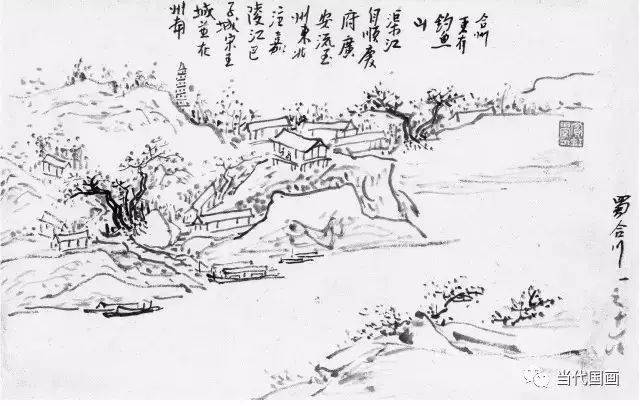 合州
更有
釣魚
山
渠江
自順慶
府廣
安流至
州東北
注嘉
陵江巴
子城宋王
城並在
州南
蜀合川一之
当代国画